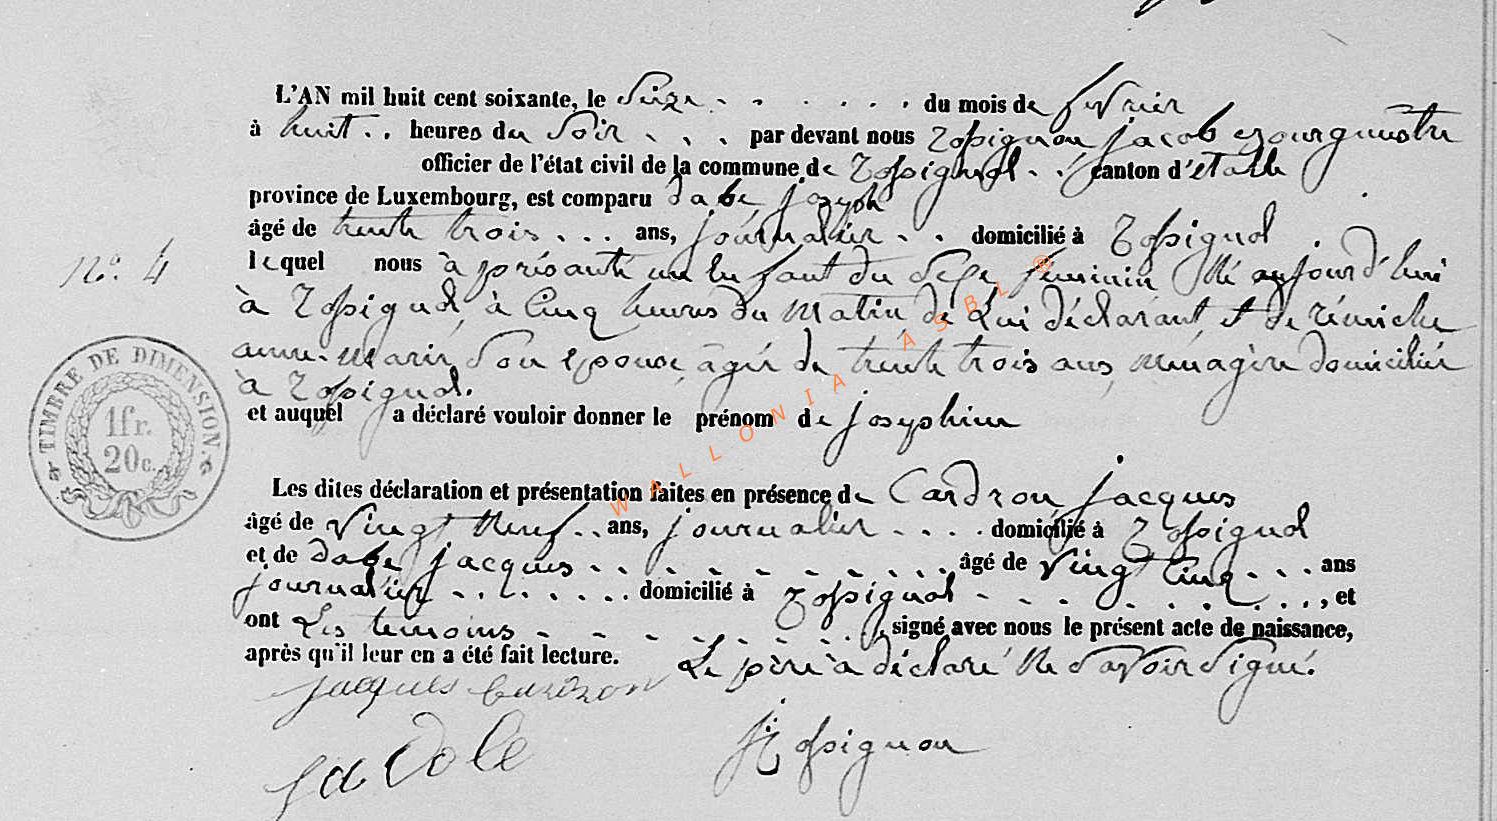 L'AN mil huit cent soixante, le Seize du mois de fevrier
à huit heures du Soir par devant nous Rossignon jacob Bourgmestre
officier de l'état civil de la commune de Rossignol canton d'étalle
province de Luxembourg, est comparu dabe joseph
âgé de trente trois ans, journalier domicilié à Rossignol
N° 4
lequel nous à présanté un Enfant du Sexe féminin Né aujourd'hui
à Rossignol, à Cinq heures du Matin, de Lui déclarant, et de
anne-marie, Son Epouse, âgée de trente trois ans, ménagère domiciliée
à Rossignol.
TIMBRE DE DIMENSION.
1fr.
20c.
et auquel a déclaré vouloir donner le prénom de josephine
Les dites déclaration et présentation faites en présence de Cardron jacques
âgé de Vingt Neuf ans, journalier domicilié à Rossignol
et de dabe jacques âgé de Vingt Cinq ans
journalier domicilié à Rossignol, et
ont Les temoins signé avec nous le présent acte de naissance,
après qu'il leur en a été fait lecture. Le père à déclaré Ne Savoir Signé.
jacques Cardron
Rossignon
WALLONIA ASBL ®